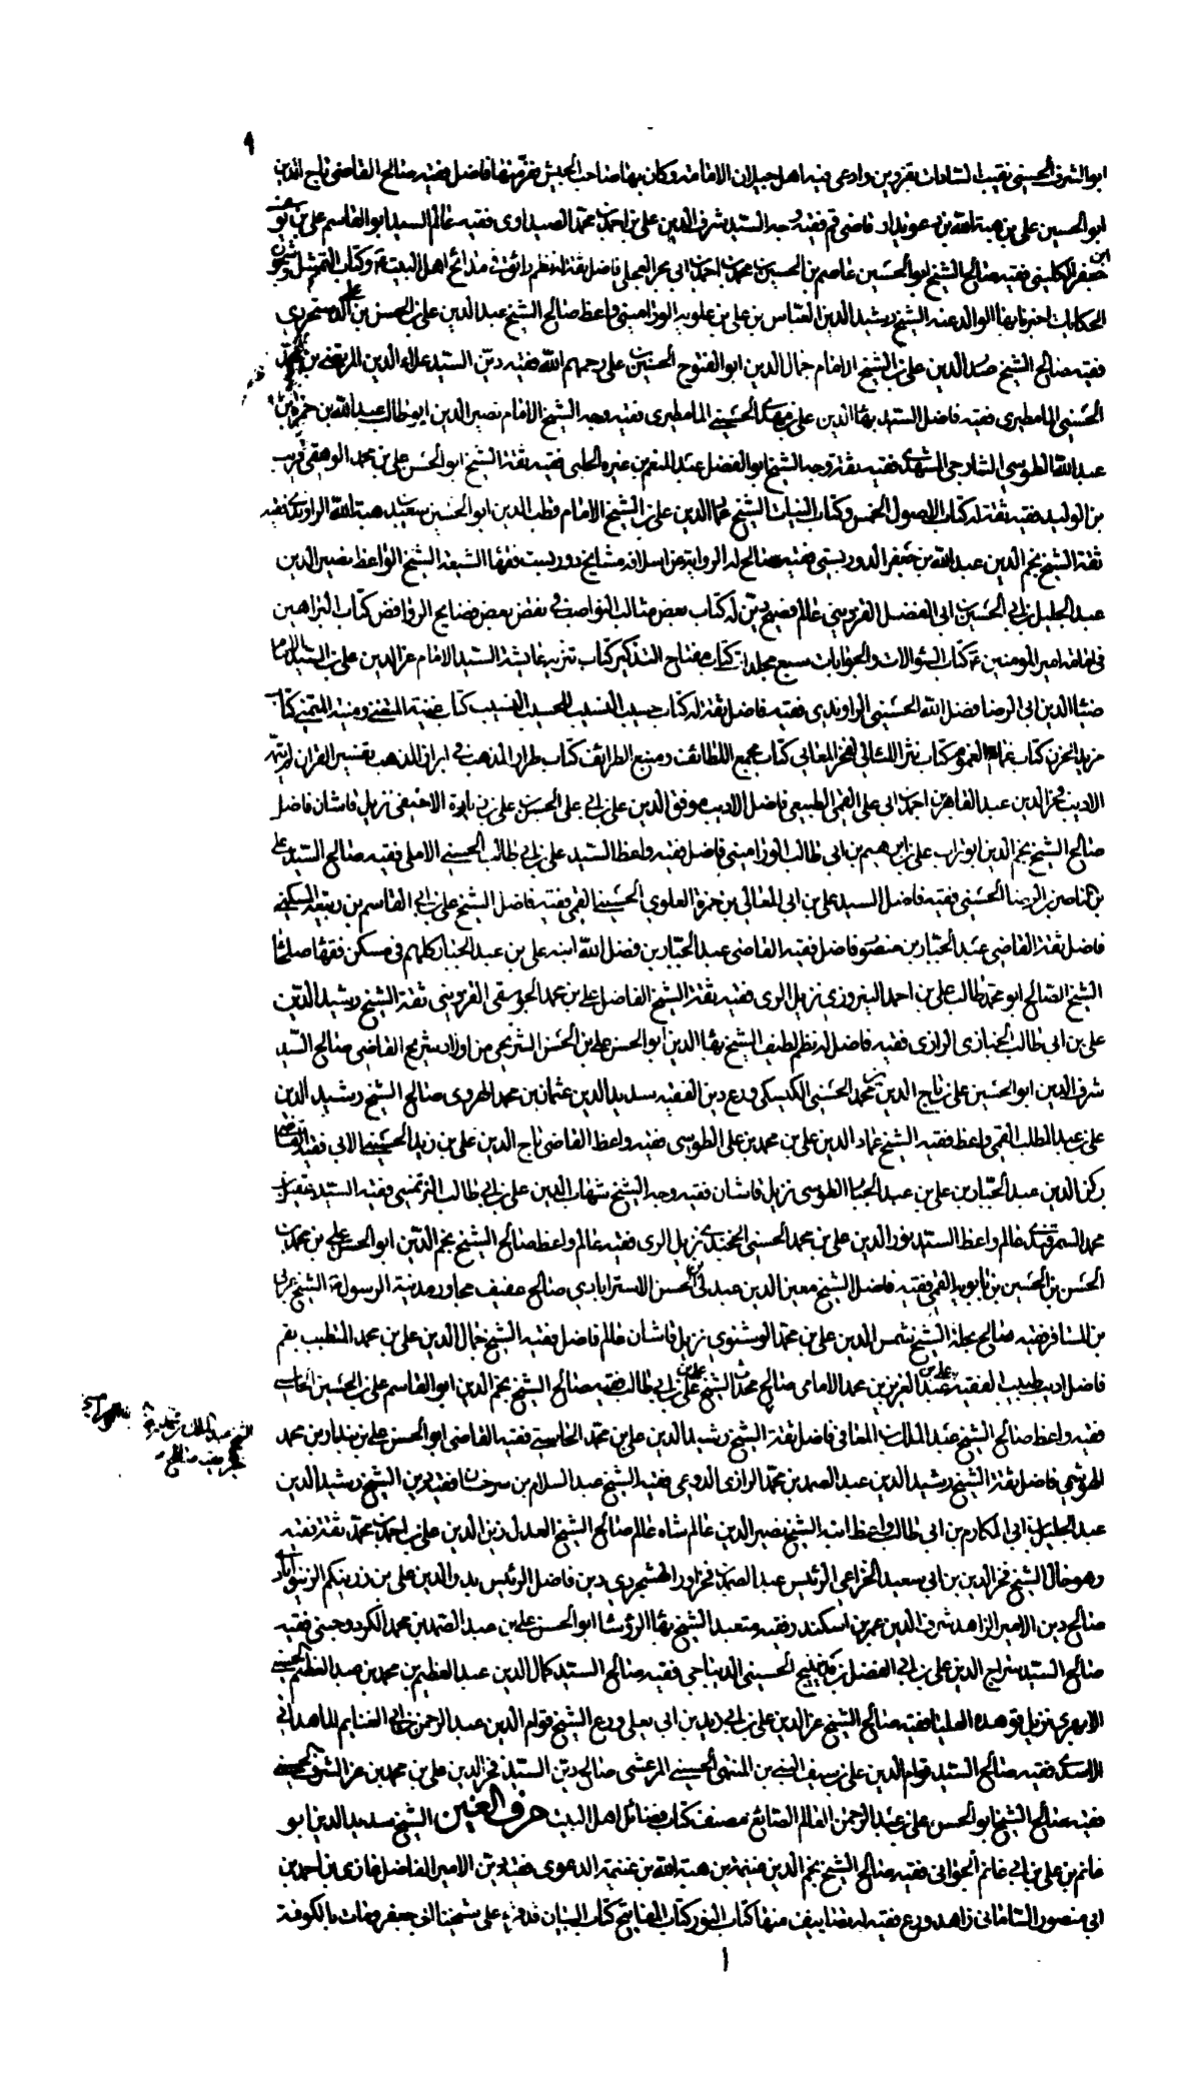 ٩
ابو الشرف الحسيني نقيب السادات بقزوين وادعى فيه اهل جيلان الامامة وكان بها صاحب الجيش ففر منها فاضل فقيه صالح القاضي تاج الدين
ابو الحسين علي بن هبة الله بن دعويدار قاضي قم فقيه وجه السيد شرف الدين علي بن احمد بن محمد الصيداوي فقيه عالم السيد ابو القاسم علي بن
جعفر الكليني فقيه صالح الشيخ ابو الحسين عاصم بن الحسين بن محمد بن احمد بن ابي حجر العجلي فاضل ثقة له نظم رائق في مدائح اهل البيت ع وكتاب التمثيل
الحكايات اخبرنا بها الوالد عنه الشيخ رشيد الدين العباس بن علي بن علويه الوراميني واعظ صالح الشيخ عبد الدين علي بن الحسن بن
فقيه صالح الشيخ صدر الدين علي بن الشيخ الامام جمال الدين ابو الفتوح الحسين بن علي رحمهم الله فقيه دين السيد علاء الدين المرتضى بن محمد
الحسيني المامطيري فقيه فاضل السيد بهاء الدين علي بن مهدي الحسيني المامطيري فقيه وجه الشيخ الامام نصير الدين ابو طالب عبد الله بن حمزة بن
عبد الله الطوسي الشارحي المشهدي فقيه ثقة وجه الشيخ ابو الفضل عبد المنعم بن غيره الحلبي فقيه ثقة الشيخ ابو الحسن علي بن محمد الوهقي قريب
بن الوليد فقيه ثقة له كتاب الاصول الخمس وكتاب النيات الشيخ عماد الدين علي بن الشيخ الامام قطب الدين ابو الحسين سعيد بن هبة الله الراوندي فقيه
ثقة الشيخ نجم الدين عبد الله بن جعفر الدوريستي فقيه صالح له الرواية عن اسلافه مشايخ دوريست فقهاء الشيعة الشيخ الواعظ نصير الدين
عبد الجليل بن ابي الحسين بن ابي الفضل القزويني عالم فصيح دين له كتاب بعض مثالب النواصب في نقض بعض فضايح الروافض كتاب البراهين
في امامة امير المومنين ع كتاب السؤالات والجوابات سبع مجلدات كتاب مفتاح التذكير كتاب تنزيه عايشة السيد الامام عز الدين علي بن السيد الامام
ضياء الدين ابي الرضا فضل الله الحسيني الراوندي فقيه فاضل ثقة له كتاب حسيب النسيب للحسيب النسيب كتاب غنية المتغني ومنية المتمني كتاب
مزيد الحزن كتاب غمام الغموم كتاب نثر اللئالي لفخر المعالي كتاب مجمع اللطائف ومنبع الطرائف كتاب طراز المذهب في ابراز المذهب تفسير القران لم يتمه
الاديب فخر الدين عبد القاهر بن احمد بن ابي علي القمي الطبيعي فاضل الاديب موفق الدين علي بن ابي علي الحسن بن علي بن زيارة الاحنفي نزيل قاشان فاضل
صالح الشيخ نجم الدين ابو تراب علي بن ابرهيم بن ابي طالب الوراميني فاضل فقيه واعظ السيد علي بن ابي طالب الحسيني الاملي فقيه صالح السيد علي
بن الناصر بن الرضا الحسيني فقيه فاضل السيد علي بن ابي المعالي بن حمزة العلوي الحسيني القمي فقيه فاضل الشيخ علي بن ابي القاسم بن ربيعة السكيني
فاضل ثقة القاضي عبد الجبار بن منصور فاضل فقيه القاضي عبد الجبار بن فضل الله ابنه علي بن عبد الجبار كلهم في مسكن فقهاء صلحاء
الشيخ الصالح ابو محمد طالب علي بن احمد البنروزي نزيل الري فقيه ثقة الشيخ الفاضل علي بن محمد الجوسقي القزويني ثقة الشيخ رشيد الدين
علي بن ابي طالب الخبازي الرازي فقيه فاضل له نظم لطيف الشيخ بهاء الدين ابو الحسن علي بن الحسن الشريحي من اولاد شريح القاضي صالح السيد
شرف الدين ابو الحسين علي بن تاج الدين محمد الحسيني الكيسكي ورع دين الفقيه سديد الدين عثمان بن محمد الهروي صالح الشيخ رشيد الدين
علي بن عبد المطلب القمي واعظ فقيه الشيخ عماد الدين علي بن محمد بن علي الطوسي فقيه واعظ القاضي تاج الدين علي بن زيد الحسيني الابي فقيه القاضي
ركن الدين عبد الجبار بن علي بن عبد الجبار الطوسي نزيل قاشان فقيه وجه الشيخ شهاب الدين علي بن ابي طالب التزتميني فقيه السيد عقيل بن
محمد السمرقندي عالم واعظ السيد نور الدين علي بن محمد الحسيني الخجندي نزيل الري فقيه عالم واعظ صالح الشيخ نجم الدين ابو الحسن علي بن محمد بن
الحسن بن الحسين بن بابويه القمي فقيه فاضل الشيخ معين الدين عبد بن الحسن الاسترابادي صالح عفيف مجاور مدينة الرسول ع الشيخ عربي
بن المسافر فقيه صالح بحلة الشيخ شمس الدين علي بن محمد الوشنوي نزيل قاشان عالم فاضل فقيه الشيخ جمال الدين علي بن محمد المتطبب بقم
فاضل اديب طبيب الفقيه عبد العزيز بن محمد الامامي صالح محدث الشيخ علي بن ابي طالب فقيه صالح الشيخ نجم الدين ابو القاسم علي بن الحسين
فقيه واعظ صالح الشيخ عبد الملك بن المعافى فاضل ثقة الشيخ رشيد الدين علي بن محمد الحاستي فقيه القاضي ابو الحسن علي بن بندار بن محمد
الهوشمي فاضل ثقة الشيخ رشيد الدين عبد الصمد بن محمد الرازي الدوعي فقيه الشيخ عبد السلام بن سرحان فقيه دين الشيخ رشيد الدين
عبد الجليل بن ابي المكارم بن ابي طالب واعظ ابنه الشيخ نصير الدين عالم شاه عالم صالح الشيخ العدل زين الدين علي بن احمد بن محمد ثقة فقيه
وهو خال الشيخ فخر الدين بن ابي سعيد الخزاعي الرئيس عبد الصمد بن فخراور الهشجردي دين فاضل الرئيس بدر الدين علي بن زرينكم الزينوابادي
صالح دين الامير الزاهد شرف الدين عمر بن اسكندر فقيه متعبد الشيخ بهاء الرؤساء ابو الحسن علي بن عبد الصمد بن محمد الكردوجيني فقيه
صالح السيد سراج الدين علي بن ابي الفضل بن خليج الحسيني الديباجي فقيه صالح السيد كمال الدين عبد العظيم بن محمد بن عبد العظيم الحسيني
الابهري نزيل قوهدة العليا فقيه صالح الشيخ عز الدين علي بن ابي زيد بن ابي يعلى ورع الشيخ قوام الدين عبد الرحمن بن ابي الغنايم الماهداني
الاسدي فقيه صالح السيد قوام الدين علي بن سيف النبي بن المنتهى الحسيني المرعشي صالح دين السيد فخر الدين علي بن محمد بن عز الشرف الحسيني
فقيه صالح الشيخ ابو الحسن علي بن عبد الرحمن العالم الصائغ مصنف كتاب فضائل اهل البيت حرف الغين الشيخ سديد الدين ابو
غانم بن علي بن ابي غانم الجواني فقيه صالح الشيخ نجم الدين غنيمة بن هبة الله بن غنيمة الدعوي فقيه دين الامير الفاضل غازي بن احمد بن
ابي منصور الساماني زاهد ورع فقيه له تصانيف منها كتاب النور كتاب المفاتيح كتاب البيان قد قرء على شيخنا ابي جعفر ومات بالكوفة